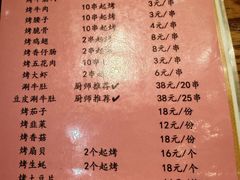 烤牛肉 10串起烤 3元/串
烤腰子 2串起烤 8元/串
烤脆骨 10串起烤 4元/串
烤鸡翅 2串起烤 8元/串
烤香仔肠 2串起烤 5元/串
烤五花肉 10串起烤 3元/串
烤大虾 2串起烤 6元/串
涮牛肚 厨师推荐✓ 38元/20串
豆皮涮牛肚 厨师推荐✓ 38元/25串
烤茄子 18元/份
烤韭菜 12元/份
烤香菇 18元/份
烤扇贝 2个起烤 16元/个
烤生蚝 2个起烤 18元/个